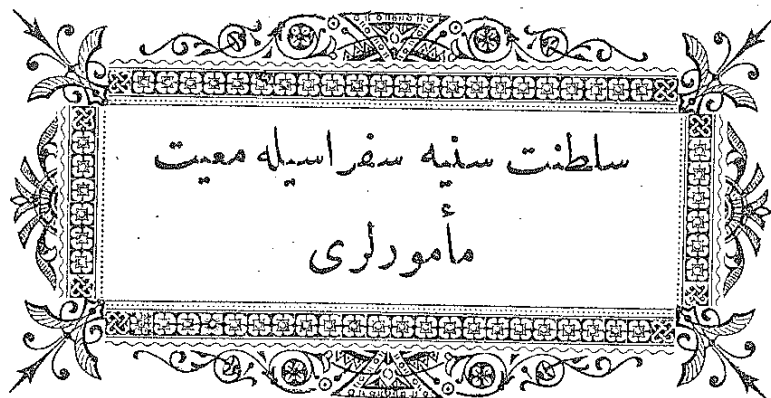 سلطنت سنیه سفراسیله معیت
مأمورلری